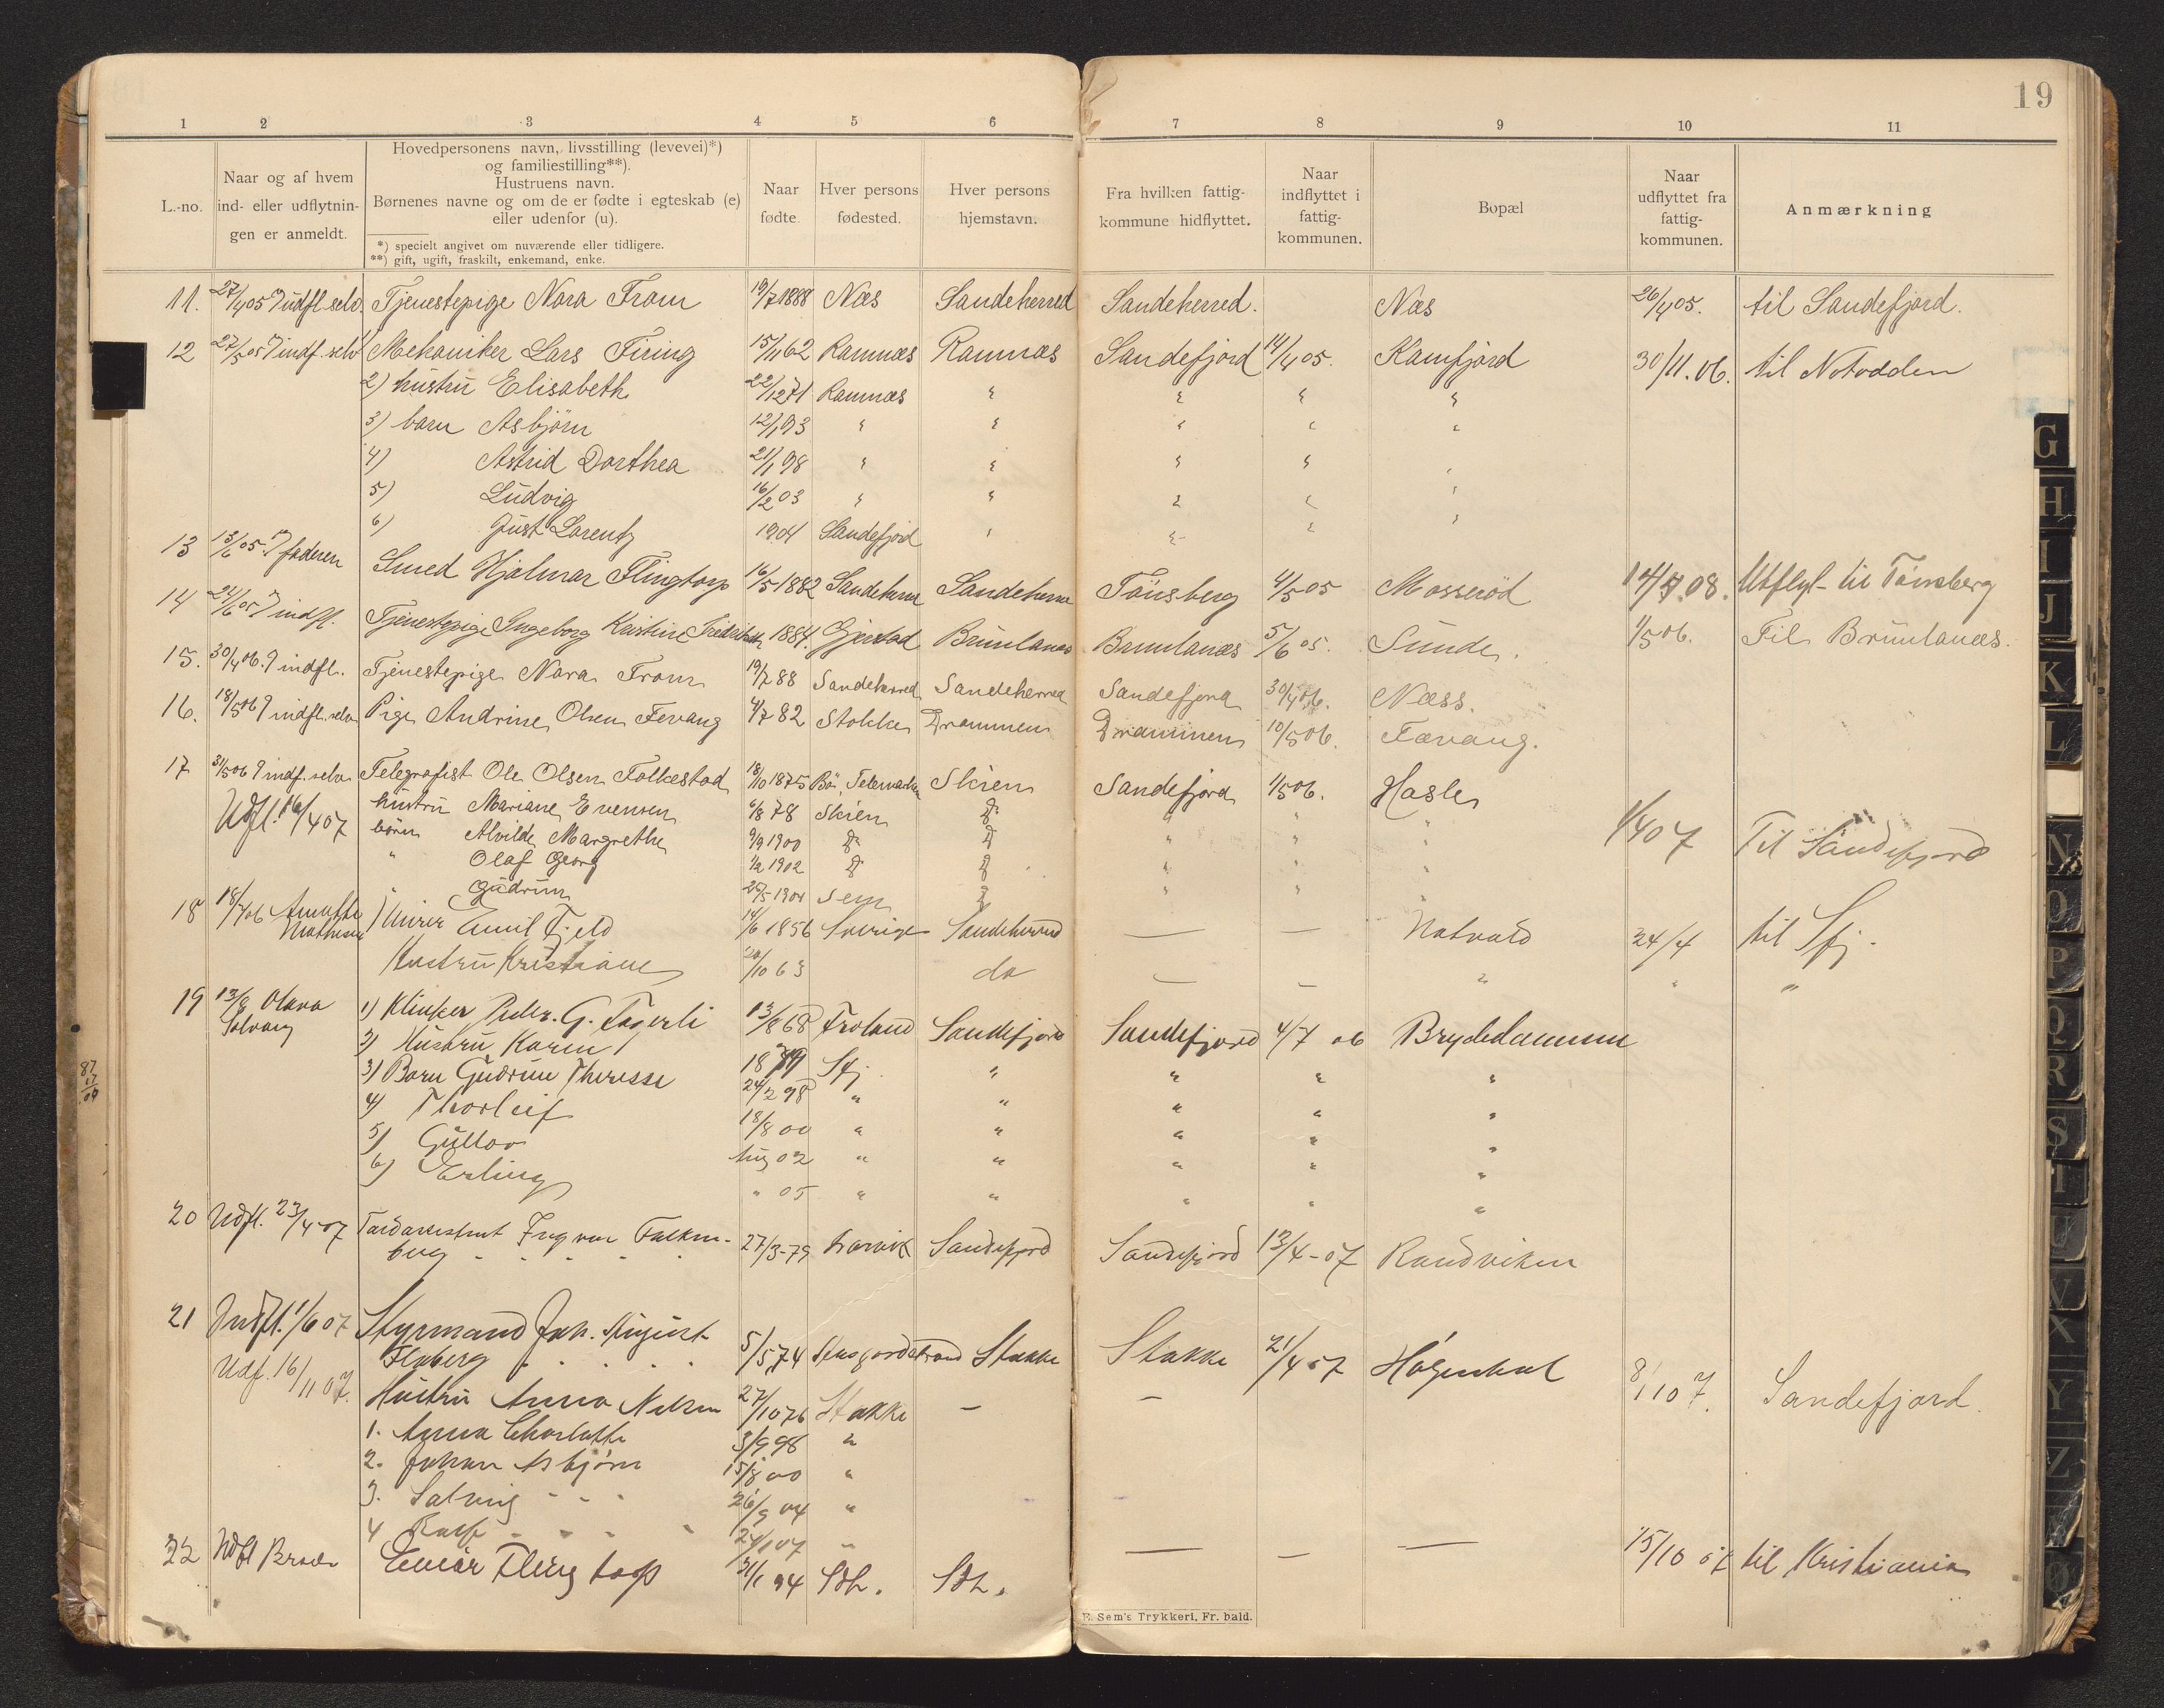 19
1 2 3 4 5 6 7 8 9 10 11
L.-no.
Naar og af hvem
ind- eller udflytnin-
gen er anmeldt.
Hovedpersonens navn, livsstilling (levevei)*)
og familiestilling**).
Hustruens navn.
Børnenes navne og om de er fødte i egteskab (e)
eller udenfor (u).
*) specielt angivet om nuværende eller tidligere.
**) gift, ugift, fraskilt, enkemand, enke.
Naar
fødte.
Hver persons
fødested.
Hver persons
hjemstavn.
Fra hvilken fattig-
kommune hidflyttet.
Naar
indflyttet i
fattig-
kommunen.
Bopæl
Naar
udflyttet fra
fattig-
kommunen.
Anmærkning
11. 27/4 05 udfl. selv. Tjenestepige Nora Fram 19/7 1888 Næs Sandeherred Sandeherred. Næs 26/4 05. til Sandefjord.
12 27/5 05 indf. selv Mekaniker Lars Firing 15/11 62 Ramnæs Ramnæs Sandefjord 14/4 05. Kamfjord 30/11.06. til Notodden
2) hustru Elisabeth 22/12 71 Ramnæs " " " "
3) barn Asbjørn 12/1 93 " " " " "
4) Astrid Dorthea 21/1 98 " " " " "
5) Ludvig 16/2 03 " " " " "
6) Just Lorentz 1904 Sandefjord " " " "
13 13/6 05. faderen Smed Hjalmar Flingtorp 16/5 1882 Sandeherred Sandeherred Tönsberg 4/5 05 Mosserød 14/5.08. Utflyt- til Tønsberg
14 24/6 05 indfl. Tjenestepige Ingeborg Kristine 1884. Gjerstad Brunlanæs Brunlanæs 5/6 05. Sunde. 1/5 06. Til Brunlanæs.
15. 30/4 06. indfl. Tjenestepige Nora Fram 19/7 88 Sandeherred Sandeherred Sandefjord 30/4 06. Næss.
16. 18/5 06 indfl. selv Pige Andrine Olsen Fevang 4/7 82 Stokke Drammen Drammen 10/5 06. Fævang.
17 31/5 06 indf. selv Telegrafist Ole Olsen Folkestad 18/10 1875 Bø, Telemarken Skien Sandefjord 1/5 06. Hasle
Udfl. 16/4 07 hustru Mariane Evensen 6/8 78 Skien D " " " 1/4 07 Til Sandefjord
børn Alvilde Margrethe 9/9 1900 D D " " "
" Olaf Georg 1/2 1902 D D " " "
" Gudrun 25/5 1904 Sem D " "
18 18/4 06 Murer Emil Fjeld 14/6 1856 Sverige Sandeherred — — Natvald 24/4 til Sfj.
Mathisen
Hustru Kristiane 20/10 63 do — — " " "
19 13/8 Olava
Solvang
1) Klinker Peder. G. Fagerli 13/8 68 Froland Sandefjord Sandefjord 4/7 06 Brydedammen
2) Hustru Karen 1879 Sfj. " " " "
3) Barn Gudrun Theresse 24/2 98 " " " " "
4) Thorleif 18/8 00 " " " " "
5) Gullov Aug 02 " " " " "
6) Erling " 05 " " " " "
20 Udfl. 23/4-07 Ingvar Falken-
berg 27/3-79 Larvik Sandefjord Sandefjord 13/4-07 Randviken
21 Indfl. 1/6 07 Styrmand Joh. August
Floberg 5/5 74 Aasgaardstrand Stokke Stokke 21/4 07 Hagenhal
Udf. 16/11 07. 8/11 07. Sandefjord.
Hustru Anna Nilsen 27/10 76 Stokke — —
1. Anna Charlotte 3/9 98 "
2. Johan Asbjørn 15/8 00 "
3. Solveig 26/9 04 "
4 Rolf 24/1 07 "
22 Udfl Broder Einar Flingtorp 31/1 94 Sdh. Sdh. — — — 15/10 07 til Kristiania
E. Sem's Trykkeri, Fr. hald.
G
H
I
J
K
L
N
O
P
Q
R
S
T
U
V
X
Y
Z
Ø